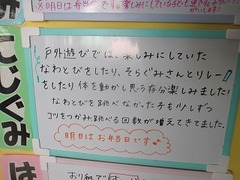 ※明日は弁当
戸外遊びでは、楽しみにしていた
なわとびをしたり、そらぐみさんとリレー
をしたり体を動かし思う存分楽しみました!
なわとびを跳べなかった子も少しずつ
コツをつかみ跳べる回数が増えてきました。
明日はお弁当日です♪
こつぐみ
は
おり紙で